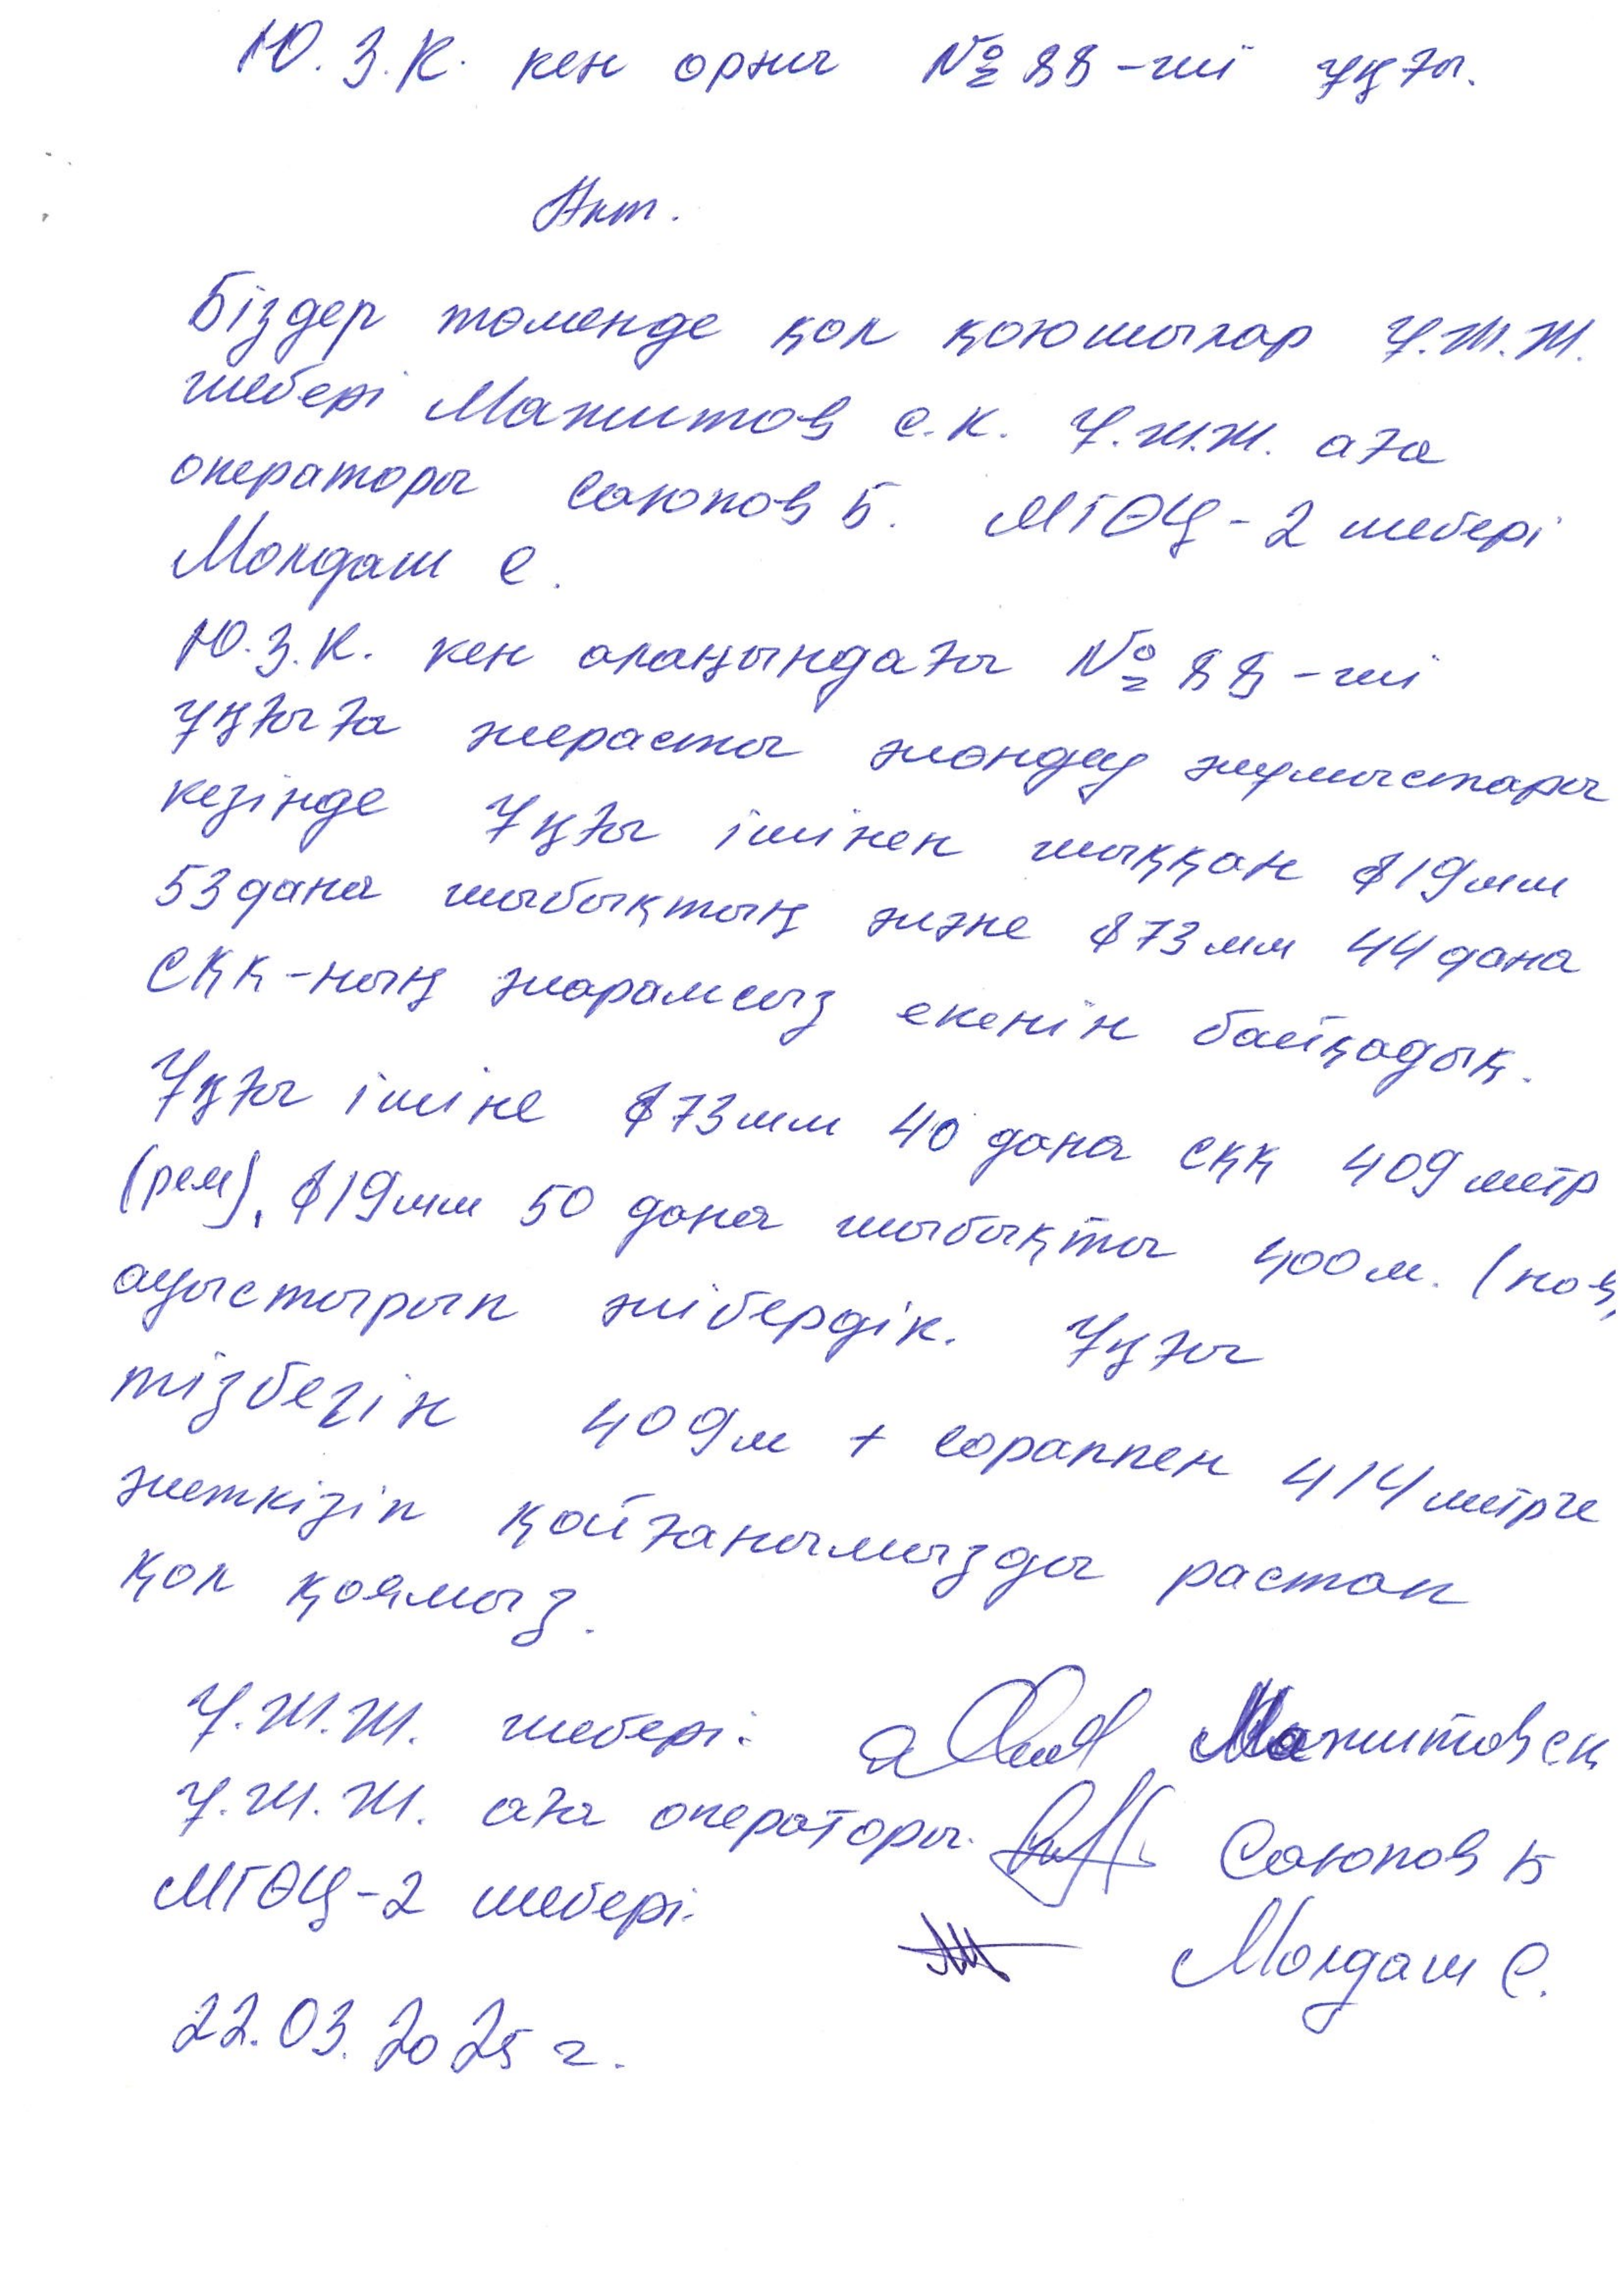 Ю.З.К. кен орны №88-ші ұңғы.
Акт.
Біздер төменде қол қоюшылар Ұ.Ж.Ж.
шебері Мажитов С.К. Ұ.Ж.Ж. аға
операторы Саюпов Б. МГӨЦ-2 шебері
Молдаш С.
Ю.З.К. кен алаңындағы №88-ші
ұңғыға жерасты жөндеу жұмыстары
кезінде Ұңғы ішінен шыққан ϕ19мм
53дана шыбықтың және ϕ73мм 44дана
СҚҚ-ның жарамсыз екенін байқадық.
Ұңғы ішіне ϕ73мм 40 дана СҚҚ 409метр
(рем), ϕ19мм 50 дана шыбықты 400м. (нов,
ауыстырып жібердік. Ұңғы
тізбегін 409м + сораппен 414метрге
жеткізіп қойғанымызды растап
қол қоямыз.
Ұ.Ж.Ж. шебері: Мажитов СК
Ұ.Ж.Ж. аға операторы. Саюпов Б
МГӨЦ-2 шебері. Молдаш С.
22.03.2025 г.